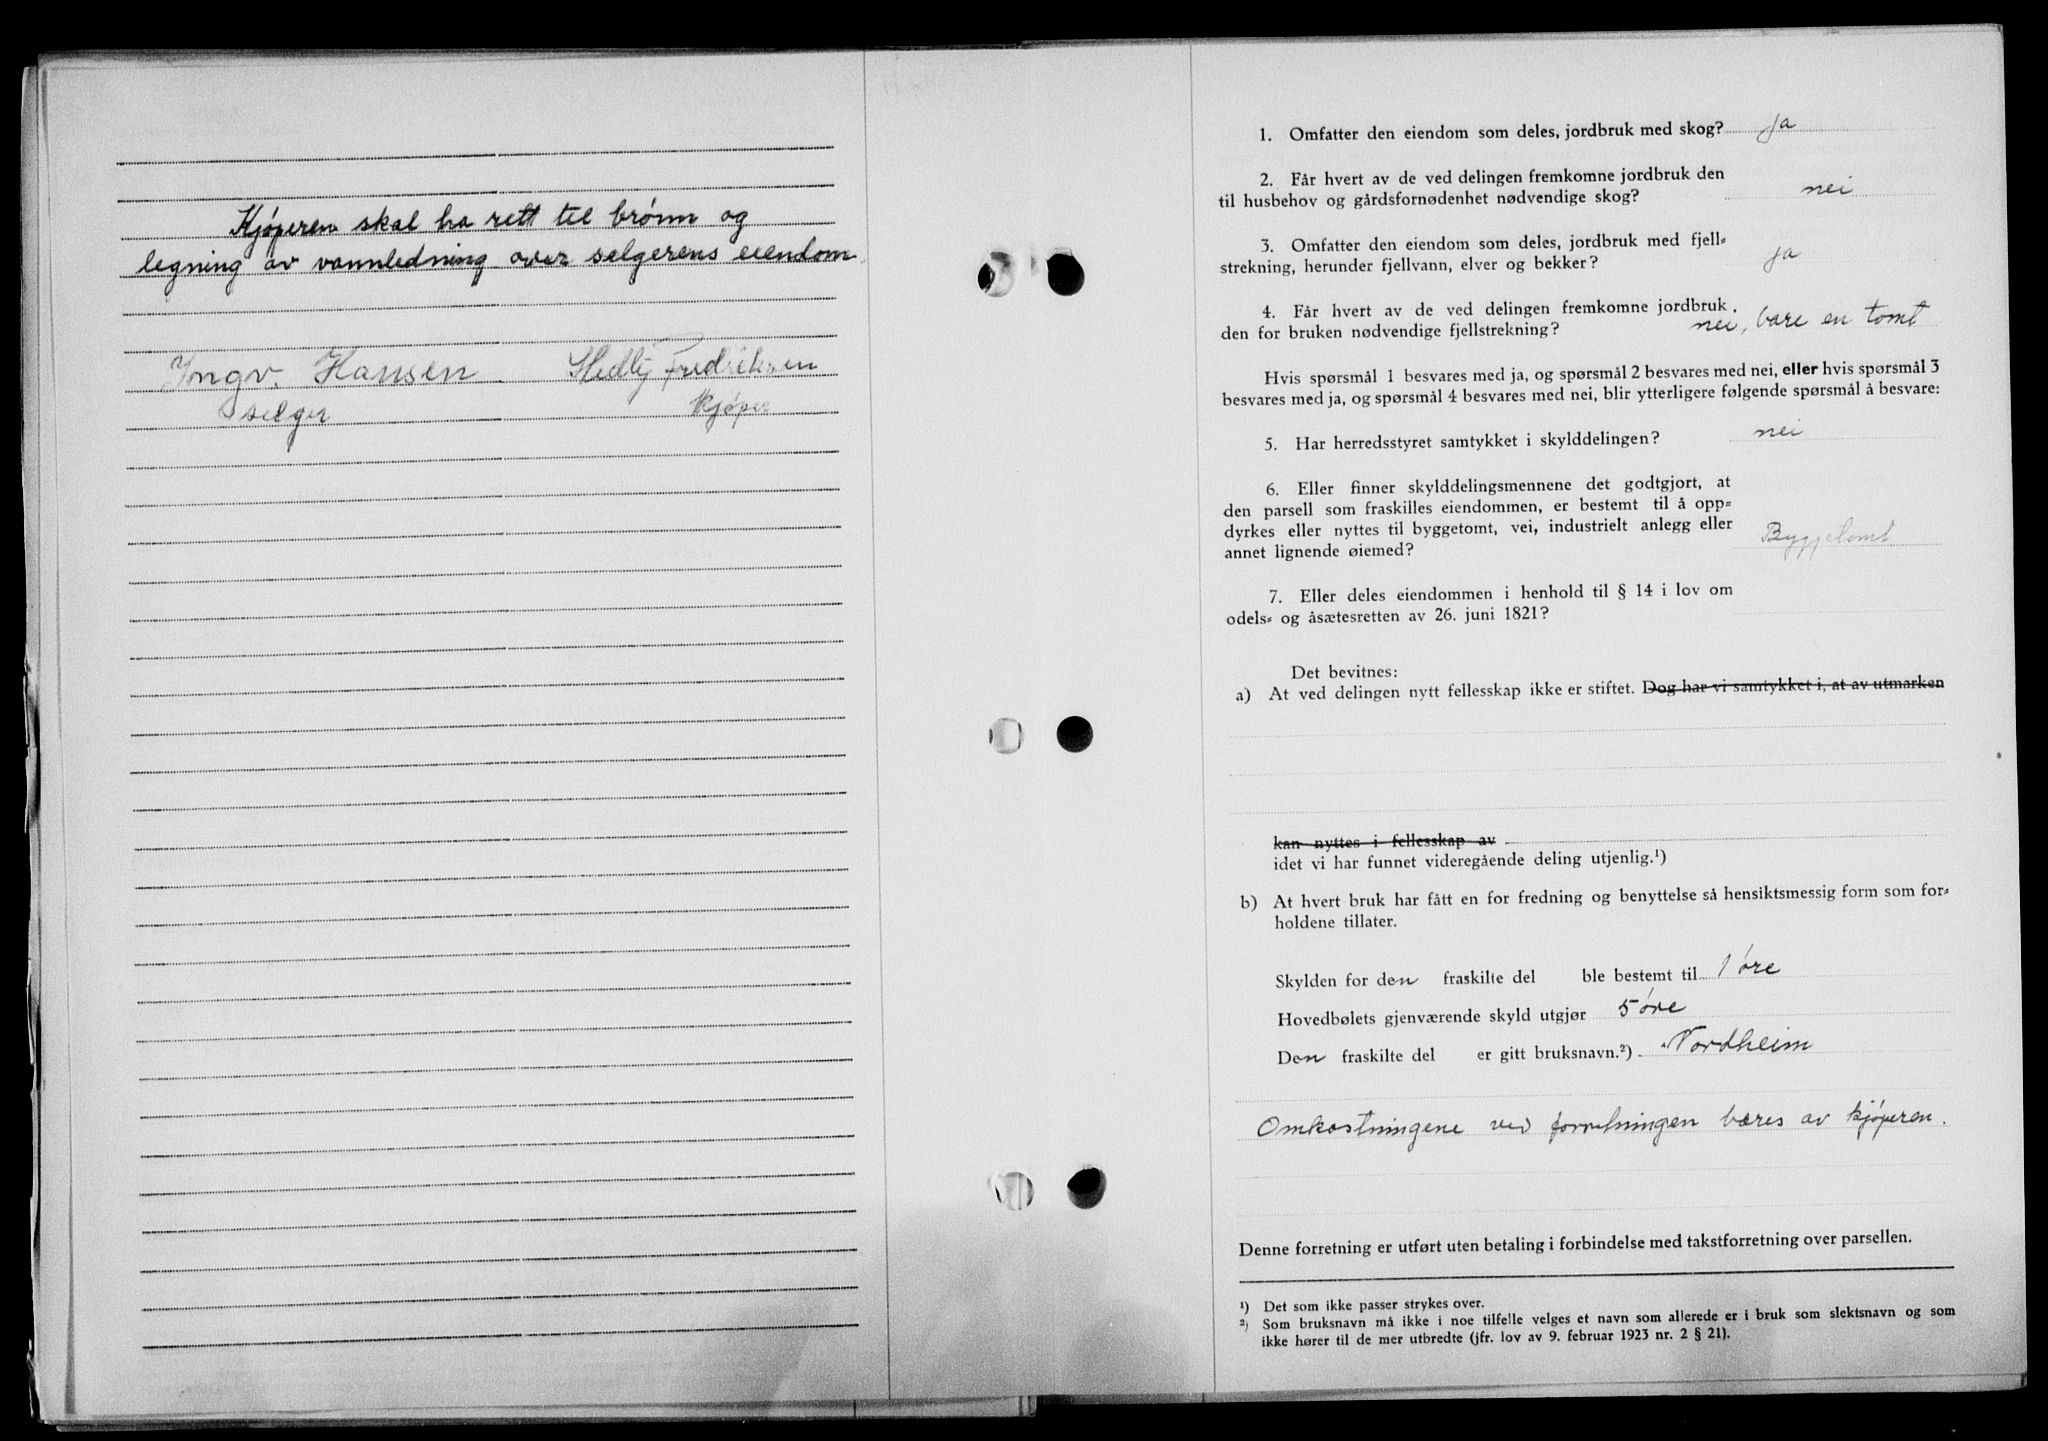 Kjøperen skal ha rett til brønn og
legning av vannledning over selgerens eiendom
Ingv. Hansen Hedly Fredriksen
selger kjøper
1. Omfatter den eiendom som deles, jordbruk med skog? ja
2. Får hvert av de ved delingen fremkomne jordbruk den
til husbehov og gårdsfornødenhet nødvendige skog? nei
3. Omfatter den eiendom som deles, jordbruk med fjell=
strekning, herunder fjellvann, elver og bekker? ja
4. Får hvert av de ved delingen fremkomne jordbruk
den for bruken nødvendige fjellstrekning? nei, bare en tomt
Hvis spørsmål 1 besvares med ja, og spørsmål 2 besvares med nei, eller hvis spørsmål 3
besvares med ja, og spørsmål 4 besvares med nei, blir ytterligere følgende spørsmål å besvare:
5. Har herredsstyret samtykket i skylddelingen? nei
6. Eller finner skylddelingsmennene det godtgjort, at
den parsell som fraskilles eiendommen, er bestemt til å opp=
dyrkes eller nyttes til byggetomt, vei, industrielt anlegg eller
annet lignende øiemed? Byggetomt
7. Eller deles eiendommen i henhold til § 14 i lov om
odels= og åsætesretten av 26. juni 1821?
Det bevitnes:
a) At ved delingen nytt fellesskap ikke er stiftet. Dog har vi samtykket i, at av utmarken
kan nyttes i fellesskap av
idet vi har funnet videregående deling utjenlig.¹)
b) At hvert bruk har fått en for fredning og benyttelse så hensiktsmessig form som for=
holdene tillater.
Skylden for den fraskilte del ble bestemt til 1 øre
Hovedbølets gjenværende skyld utgjør 5 øre
Den fraskilte del er gitt bruksnavn.²) Nordheim
Omkostningene ved forretningen bæres av kjøperen.
Denne forretning er utført uten betaling i forbindelse med takstforretning over parsellen.
¹) Det som ikke passer strykes over.
²) Som bruksnavn må ikke i noe tilfelle velges et navn som allerede er i bruk som slektsnavn og som
ikke hører til de mer utbredte (jfr. lov av 9. februar 1923 nr. 2 § 21).